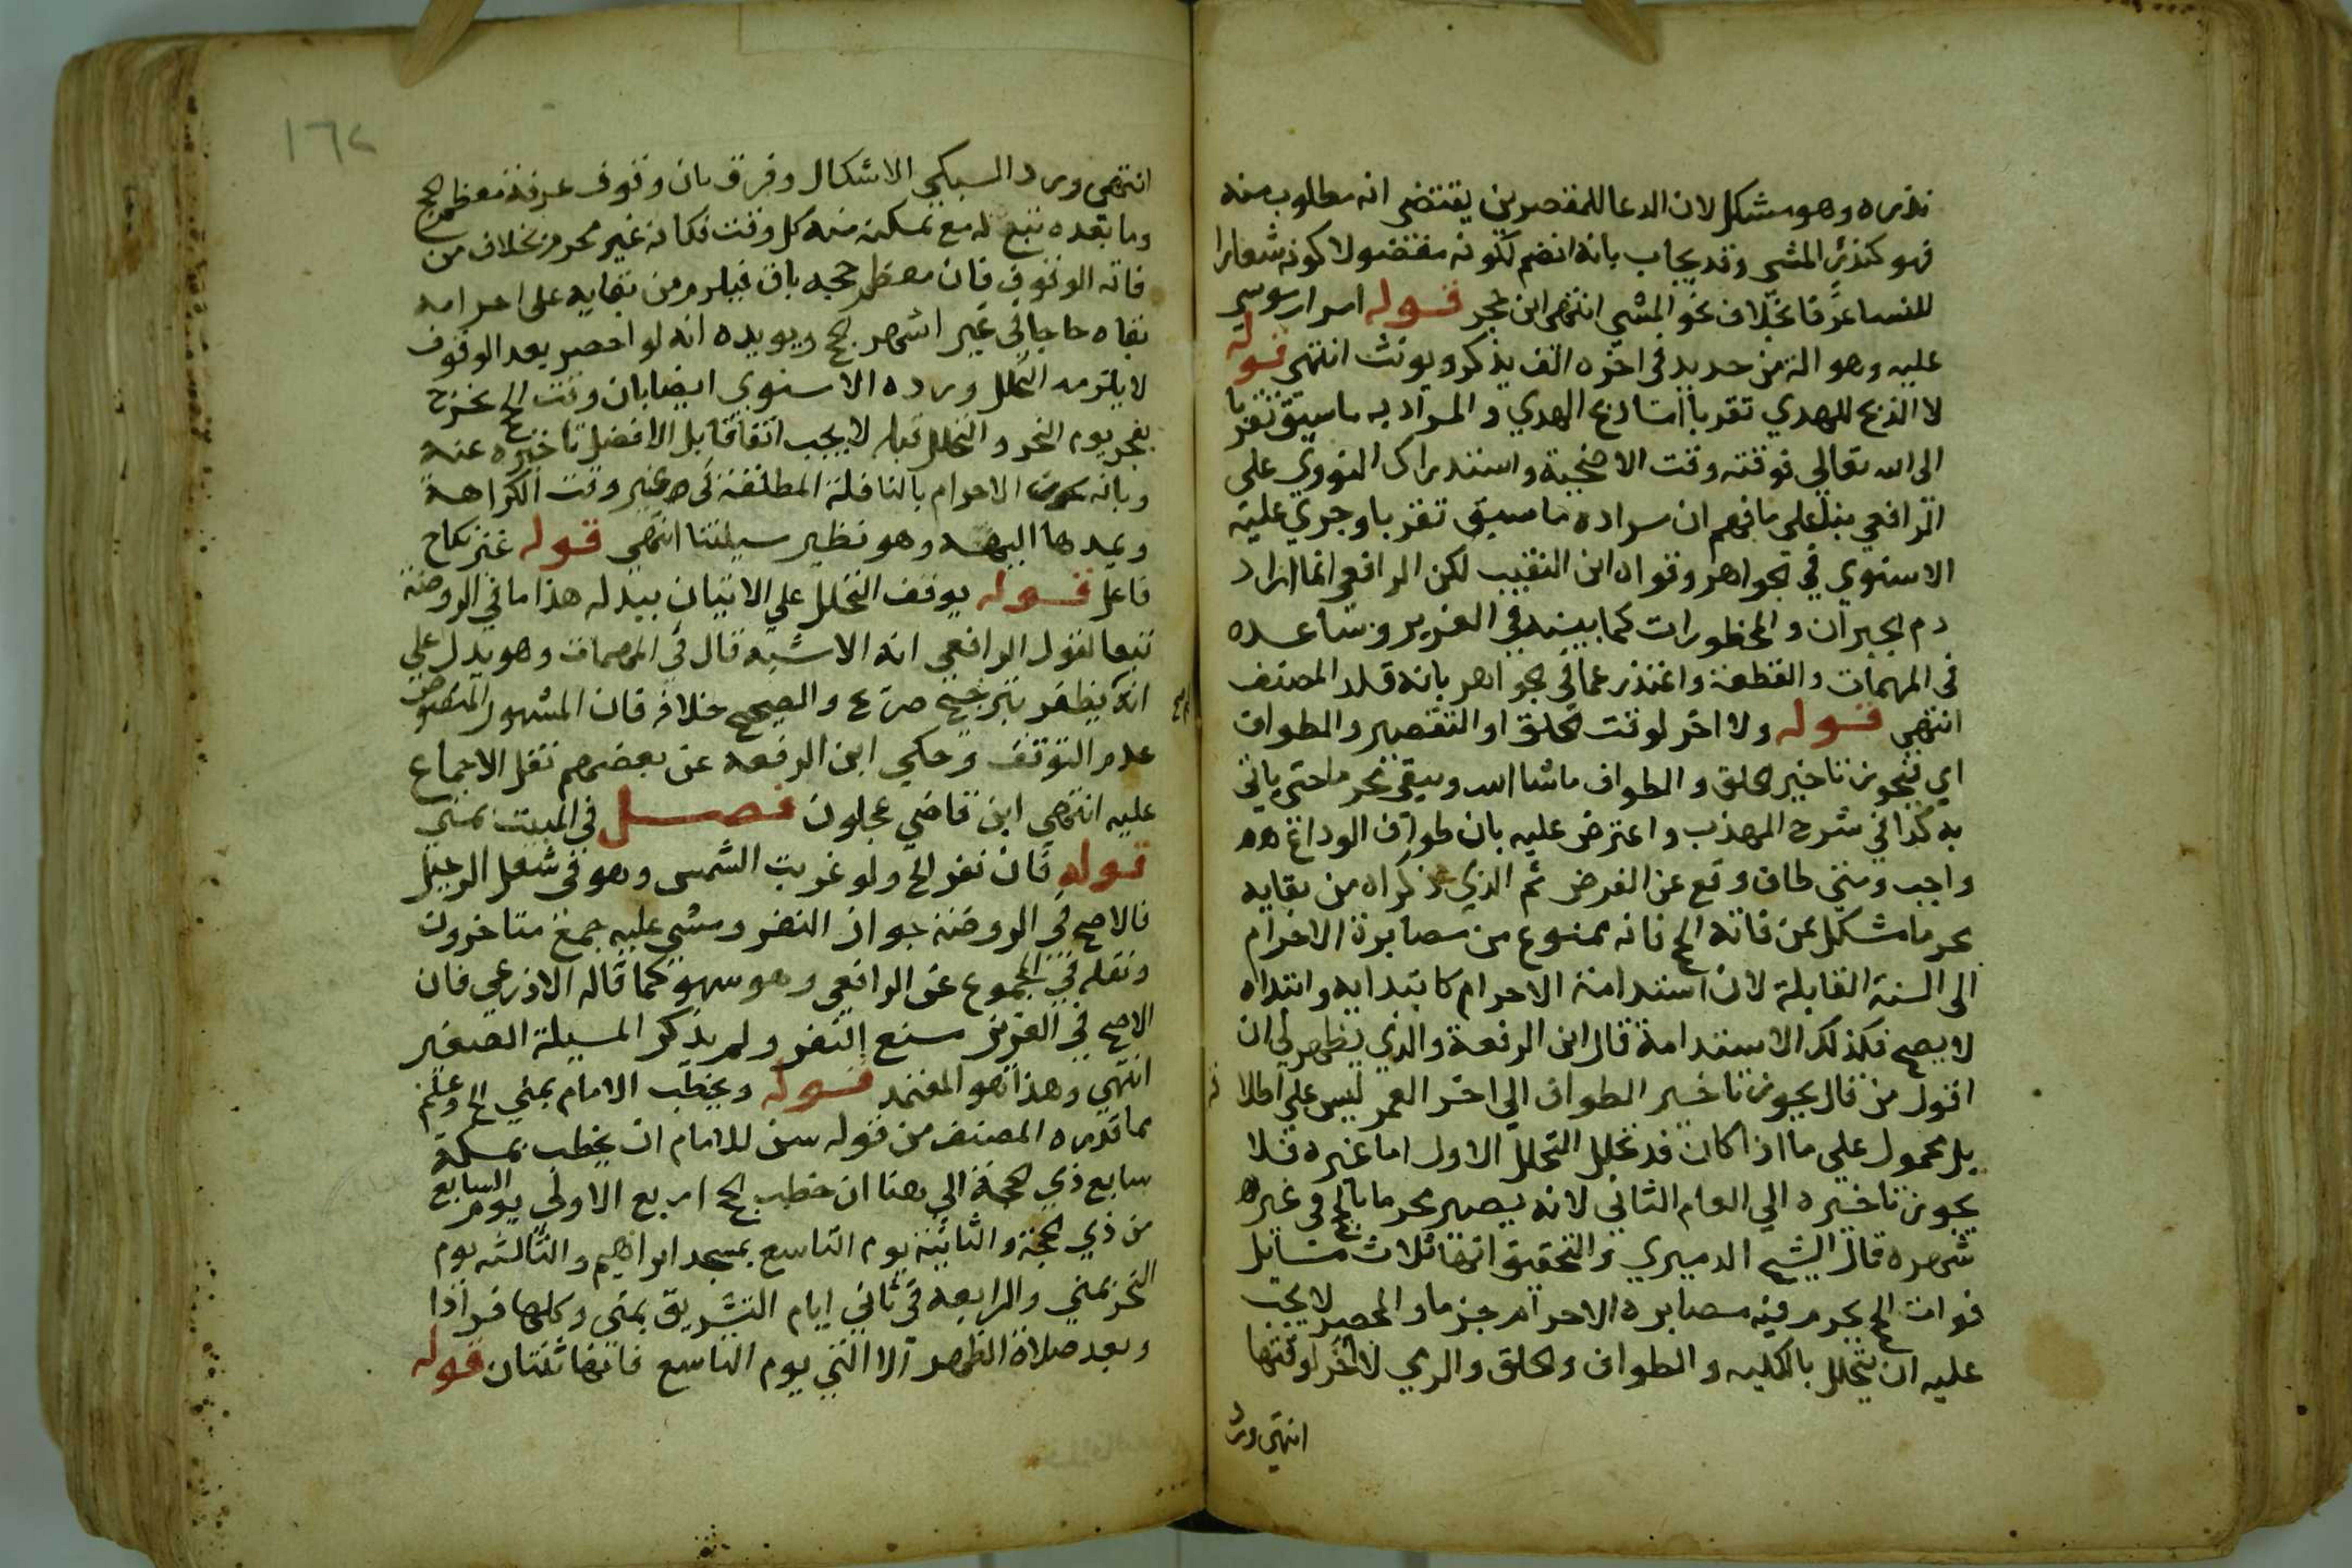 نذره وهو مشكل لان الدعا للمقصرين يقتضي انه مطلوب منه
فهو كنذر المشي وقد يجاب بانه انضم لكونه مفضولا كونه شعارا
للنسا عرفا بخلاف نحو المشي انتهى ابن حجر قوله امرار موسى
عليه وهو الة من حديد في اخره الف يذكر ويونث انتهى قوله
لا الذبح للهدي تقربا اشار دع الهدي والمراد به ما سيق تقربا
الى الله تعالى فوقته وقت الاضحية واستدراك النووي على
الرافعي بنا على ما فهم ان مراده ما سيق تقربا وجرى عليه
الاسنوي في الجواهر وقواه ابن النقيب لكن الرافعي انما اراد
دم الجبران والمحظورات كما بينه في العزيز وساعده
في المهمات والقطعة واعتذر عما في الجواهر بانه قلد المصنف
انتهى قوله ولا اخر لوقت الحلق او التقصير والطواف
اي فيجوز تاخير الحلق والطواف ماشا الله ويبقى محرما حتى ياتي
به كذا في شرح المهذب واعترض عليه بان طواف الوداع
واجب ومتى طاف وقع عن الفرض ثم الذي ذكراه من بقايه
محرما مشكل بمن فاته الحج فانه ممنوع من مصابرة الاحرام
الى السنة القابلة لان استدامة الاحرام كابتدايه وابتداه
لا يصح فكذلك الاستدامة قال ابن الرفعة والذي يظهر لي ان
اقول من قال يجوز تاخير الطواف الي اخر العمر ليس علي اطلا
بل محمول علي ما اذا كان قد تحلل التحلل الاول اما غيره فلا
يجوز تاخيره الي العام الثاني لانه يصير محرما بالحج في غير
شهره قال الشيخ الدميري والتحقيق انها ثلاث مسايل
فوات الحج يحرم فيه مصابرة الاحرام جزما والمحصر لا يجب
عليه ان يتحلل بالكلية والطواف والحلق والرمي لا اخر لوقتها
انتهى ورد
١٦٢
انتهى ورد السبكي الاشكال وفرق بان وقوف عرفة معظم الحج
وما بعده تبع له مع تمكنه منه كل وقت فكانه غير محرم بخلاف من
فاته الوقوف فان معظم حجه باق فيلزم من بقايه على احرامه
بقاه حاجا في غير اشهر الحج ويويده انه لو احصر بعد الوقوف
لا يلزمه التحلل ورده الاسنوي ايضا بان وقت الحج يخرج
بفجر يوم النحر والتحلل قبله لا يجب اتفاقا بل الافضل تاخيره عنه
وبانه الاحرام بالنافلة المطلقة في غير وقت الكراهة
ويمدها اليه وهو نظير مسيلتنا انتهى قوله غير نكاح
فاعل قوله يوقف التحلل على الاتيان ببدله هذا ما في الروضة
تبعا لقول الرافعي انه الاشبه قال في المهمات وهو يدل علي
انه لم يظفر بترجيح صريح والصحيح خلافه فان المشهور المنصوص
عدم التوقف وحكي ابن الرفعة عن بعضهم نقل الاجماع
عليه انتهى ابن قاضي عجلون فصل في المبيت بمنى
قوله فان نفر الخ ولو غربت الشمس وهو في شغل الرحيل
فالاصح في الروضة جواز النفر ومشي عليه جمع متاخرون
ونقله في المجموع عن الرافعي وهو سهو كما قاله الاذرعي فان
الاصح في العزيز منع النفر ولم يذكر المسيلة الصغير
انتهى وهذا هو المعتمد قوله ويخطب الامام بمنى الخ وعلم
مما قدره المصنف من قوله سن للامام ان يخطب بمكة
سابع ذي الحجة الي هنا ان خطب الحج اربع الاولى يوم السابع
من ذي الحجة والثانية يوم التاسع بمسجد ابراهيم والثالثة يوم
النحر بمنى والرابعة في ثاني ايام التشريق بمنى وكلها فرادا
وبعد صلاة الظهر الا التي يوم التاسع فانها ثنتان قوله